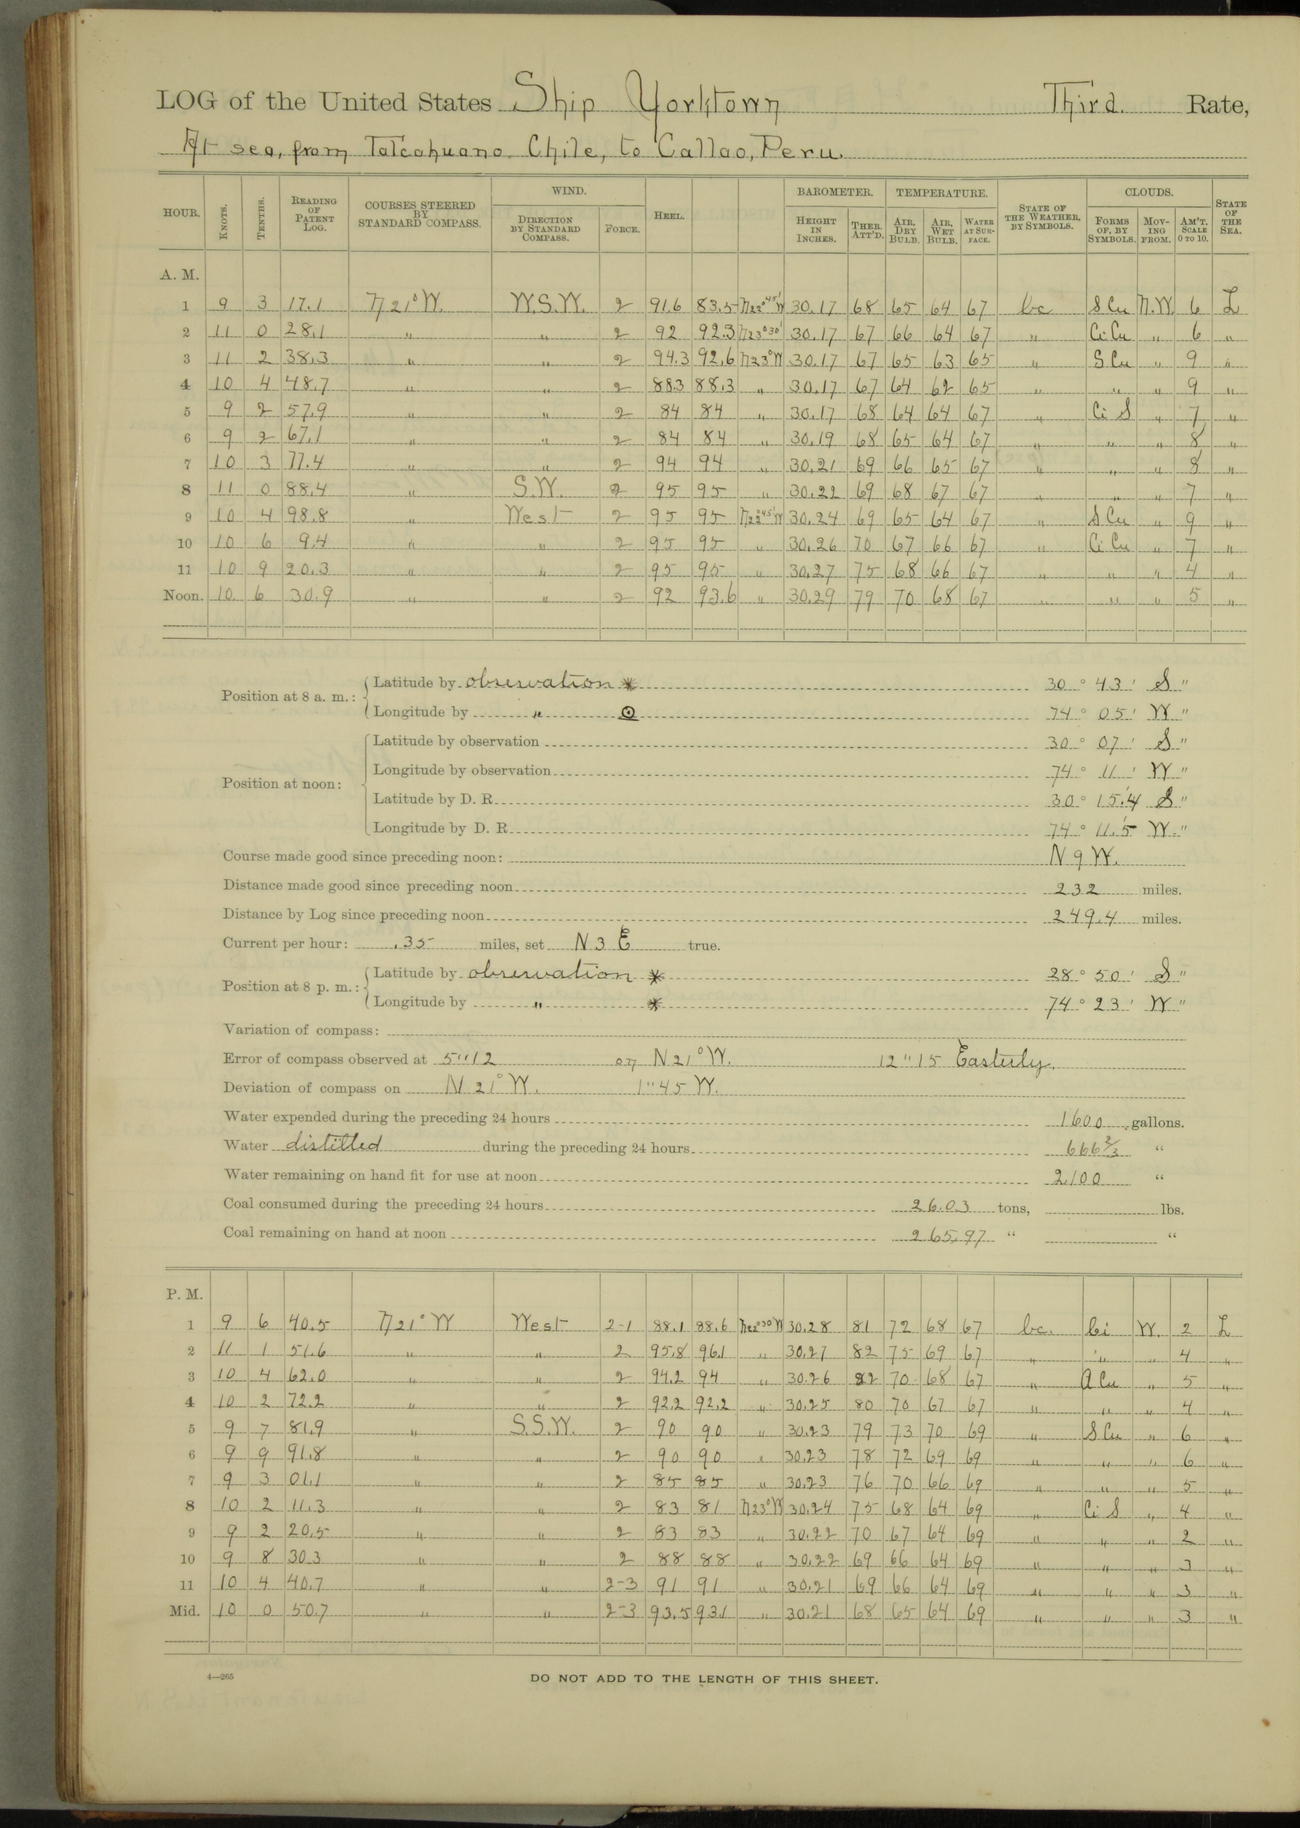 LOG of the United States Ship Yorktown Third Rate,
At sea, from Talcahuano Chile, to Callao, Peru.
HOUR. KNOTS. TENTHS. READING OF PATENT LOG. COURSES STEERED BY STANDARD COMPASS. WIND. DIRECTION BY STANDARD COMPASS. FORCE. HEEL. BAROMETER. HEIGHT IN INCHES. THER. ATT'D. TEMPERATURE. AIR, DRY BULB. AIR, WET BULB. WATER AT SURFACE. STATE OF THE WEATHER, BY SYMBOLS. CLOUDS. FORMS OF, BY SYMBOLS. MOVING FROM. AM'T. SCALE 0 TO 10. STATE OF THE SEA.
A. M.
1 9 3 17.1 N 21° W. W.S.W. 2 91.6 83.5 N22°45'W 30.17 68 65 64 67 bc S Cu N.W. 6 L
2 11 0 28.1 " " 2 92 92.3 N23°30' 30.17 67 66 64 67 " Ci Cu " 6 "
3 11 2 38.3 " " 2 94.3 92.6 N23°W 30.17 67 65 63 65 " S Cu " 9 "
4 10 4 48.7 " " 2 88.3 88.3 " 30.17 67 64 62 65 " " " 9 "
5 9 2 57.9 " " 2 84 84 " 30.17 68 64 64 67 " Ci S " 7 "
6 9 2 67.1 " " 2 84 84 " 30.19 68 65 64 67 " " " 8 "
7 10 3 77.4 " " 2 94 94 " 30.21 69 66 65 67 " " " 8 "
8 11 0 88.4 " S.W. 2 95 95 " 30.22 69 68 67 67 " " " 7 "
9 10 4 98.8 " West 2 95 95 N22°45'W 30.24 69 65 64 67 " S Cu " 9 "
10 10 6 9.4 " " 2 95 95 " 30.26 70 67 66 67 " Ci Cu " 7 "
11 10 9 20.3 " " 2 95 95 " 30.27 75 68 66 67 " " " 4 "
Noon. 10 6 30.9 " " 2 92 93.6 " 30.29 79 70 68 67 " " " 5 "
Position at 8 a. m.: Latitude by observation * 30 ° 43 ' S "
Longitude by " ⊙ 74 ° 05 ' W "
Position at noon: Latitude by observation 30 ° 07 ' S "
Longitude by observation 74 ° 11 ' W "
Latitude by D. R. 30 ° 15.4 ' S "
Longitude by D. R. 74 ° 11.5 ' W. "
Course made good since preceding noon: N 9 W.
Distance made good since preceding noon 232 miles.
Distance by Log since preceding noon 249.4 miles.
Current per hour: .35 miles, set N 3 E true.
Position at 8 p. m.: Latitude by observation * 28 ° 50 ' S "
Longitude by " * 74 ° 23 ' W "
Variation of compass:
Error of compass observed at 5"12 on N 21° W. 12"15 Easterly.
Deviation of compass on N 21° W. 1"45 W.
Water expended during the preceding 24 hours 1600 gallons.
Water distilled during the preceding 24 hours 666 2/3 "
Water remaining on hand fit for use at noon 2100 "
Coal consumed during the preceding 24 hours 26.03 tons, lbs.
Coal remaining on hand at noon 265.97 " "
P. M.
1 9 6 40.5 N 21° W West 2-1 88.1 88.6 N22°30'W 30.28 81 72 68 67 bc. Ci W. 2 L
2 11 1 51.6 " " 2 95.8 96.1 " 30.27 82 75 69 67 " " " 4 "
3 10 4 62.0 " " 2 94.2 94 " 30.26 82 70 68 67 " A Cu " 5 "
4 10 2 72.2 " " 2 92.2 92.2 " 30.25 80 70 67 67 " " " 4 "
5 9 7 81.9 " S.S.W. 2 90 90 " 30.23 79 73 70 69 " S Cu " 6 "
6 9 9 91.8 " " 2 90 90 " 30.23 78 72 69 69 " " " 6 "
7 9 3 01.1 " " 2 85 85 " 30.23 76 70 66 69 " " " 5 "
8 10 2 11.3 " " 2 83 81 N23°W 30.24 75 68 64 69 " Ci S " 4 "
9 9 2 20.5 " " 2 83 83 " 30.22 70 67 64 69 " " " 2 "
10 9 8 30.3 " " 2 88 88 " 30.22 69 66 64 69 " " " 3 "
11 10 4 40.7 " " 2-3 91 91 " 30.21 69 66 64 69 " " " 3 "
Mid. 10 0 50.7 " " 2-3 93.5 93.1 " 30.21 68 65 64 69 " " " 3 "
4—265
DO NOT ADD TO THE LENGTH OF THIS SHEET.